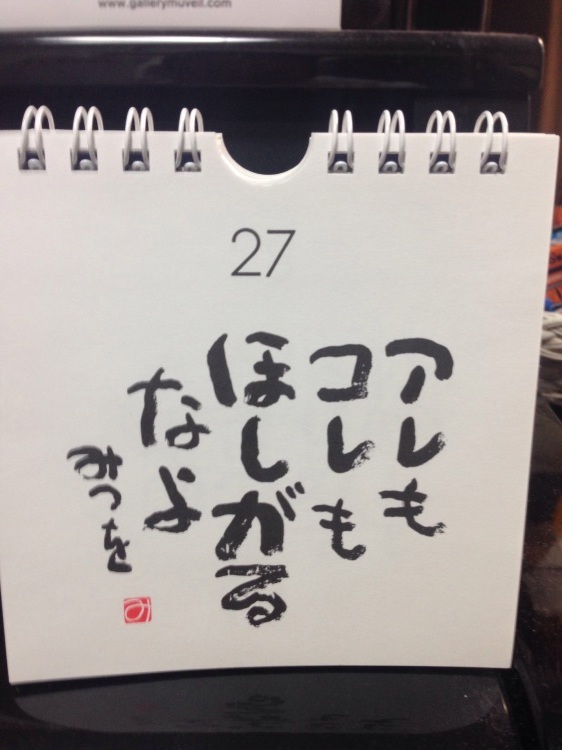 www.gallerymuveil.com
27
アレも
コレも
ほしがる
なよ
みつを
み